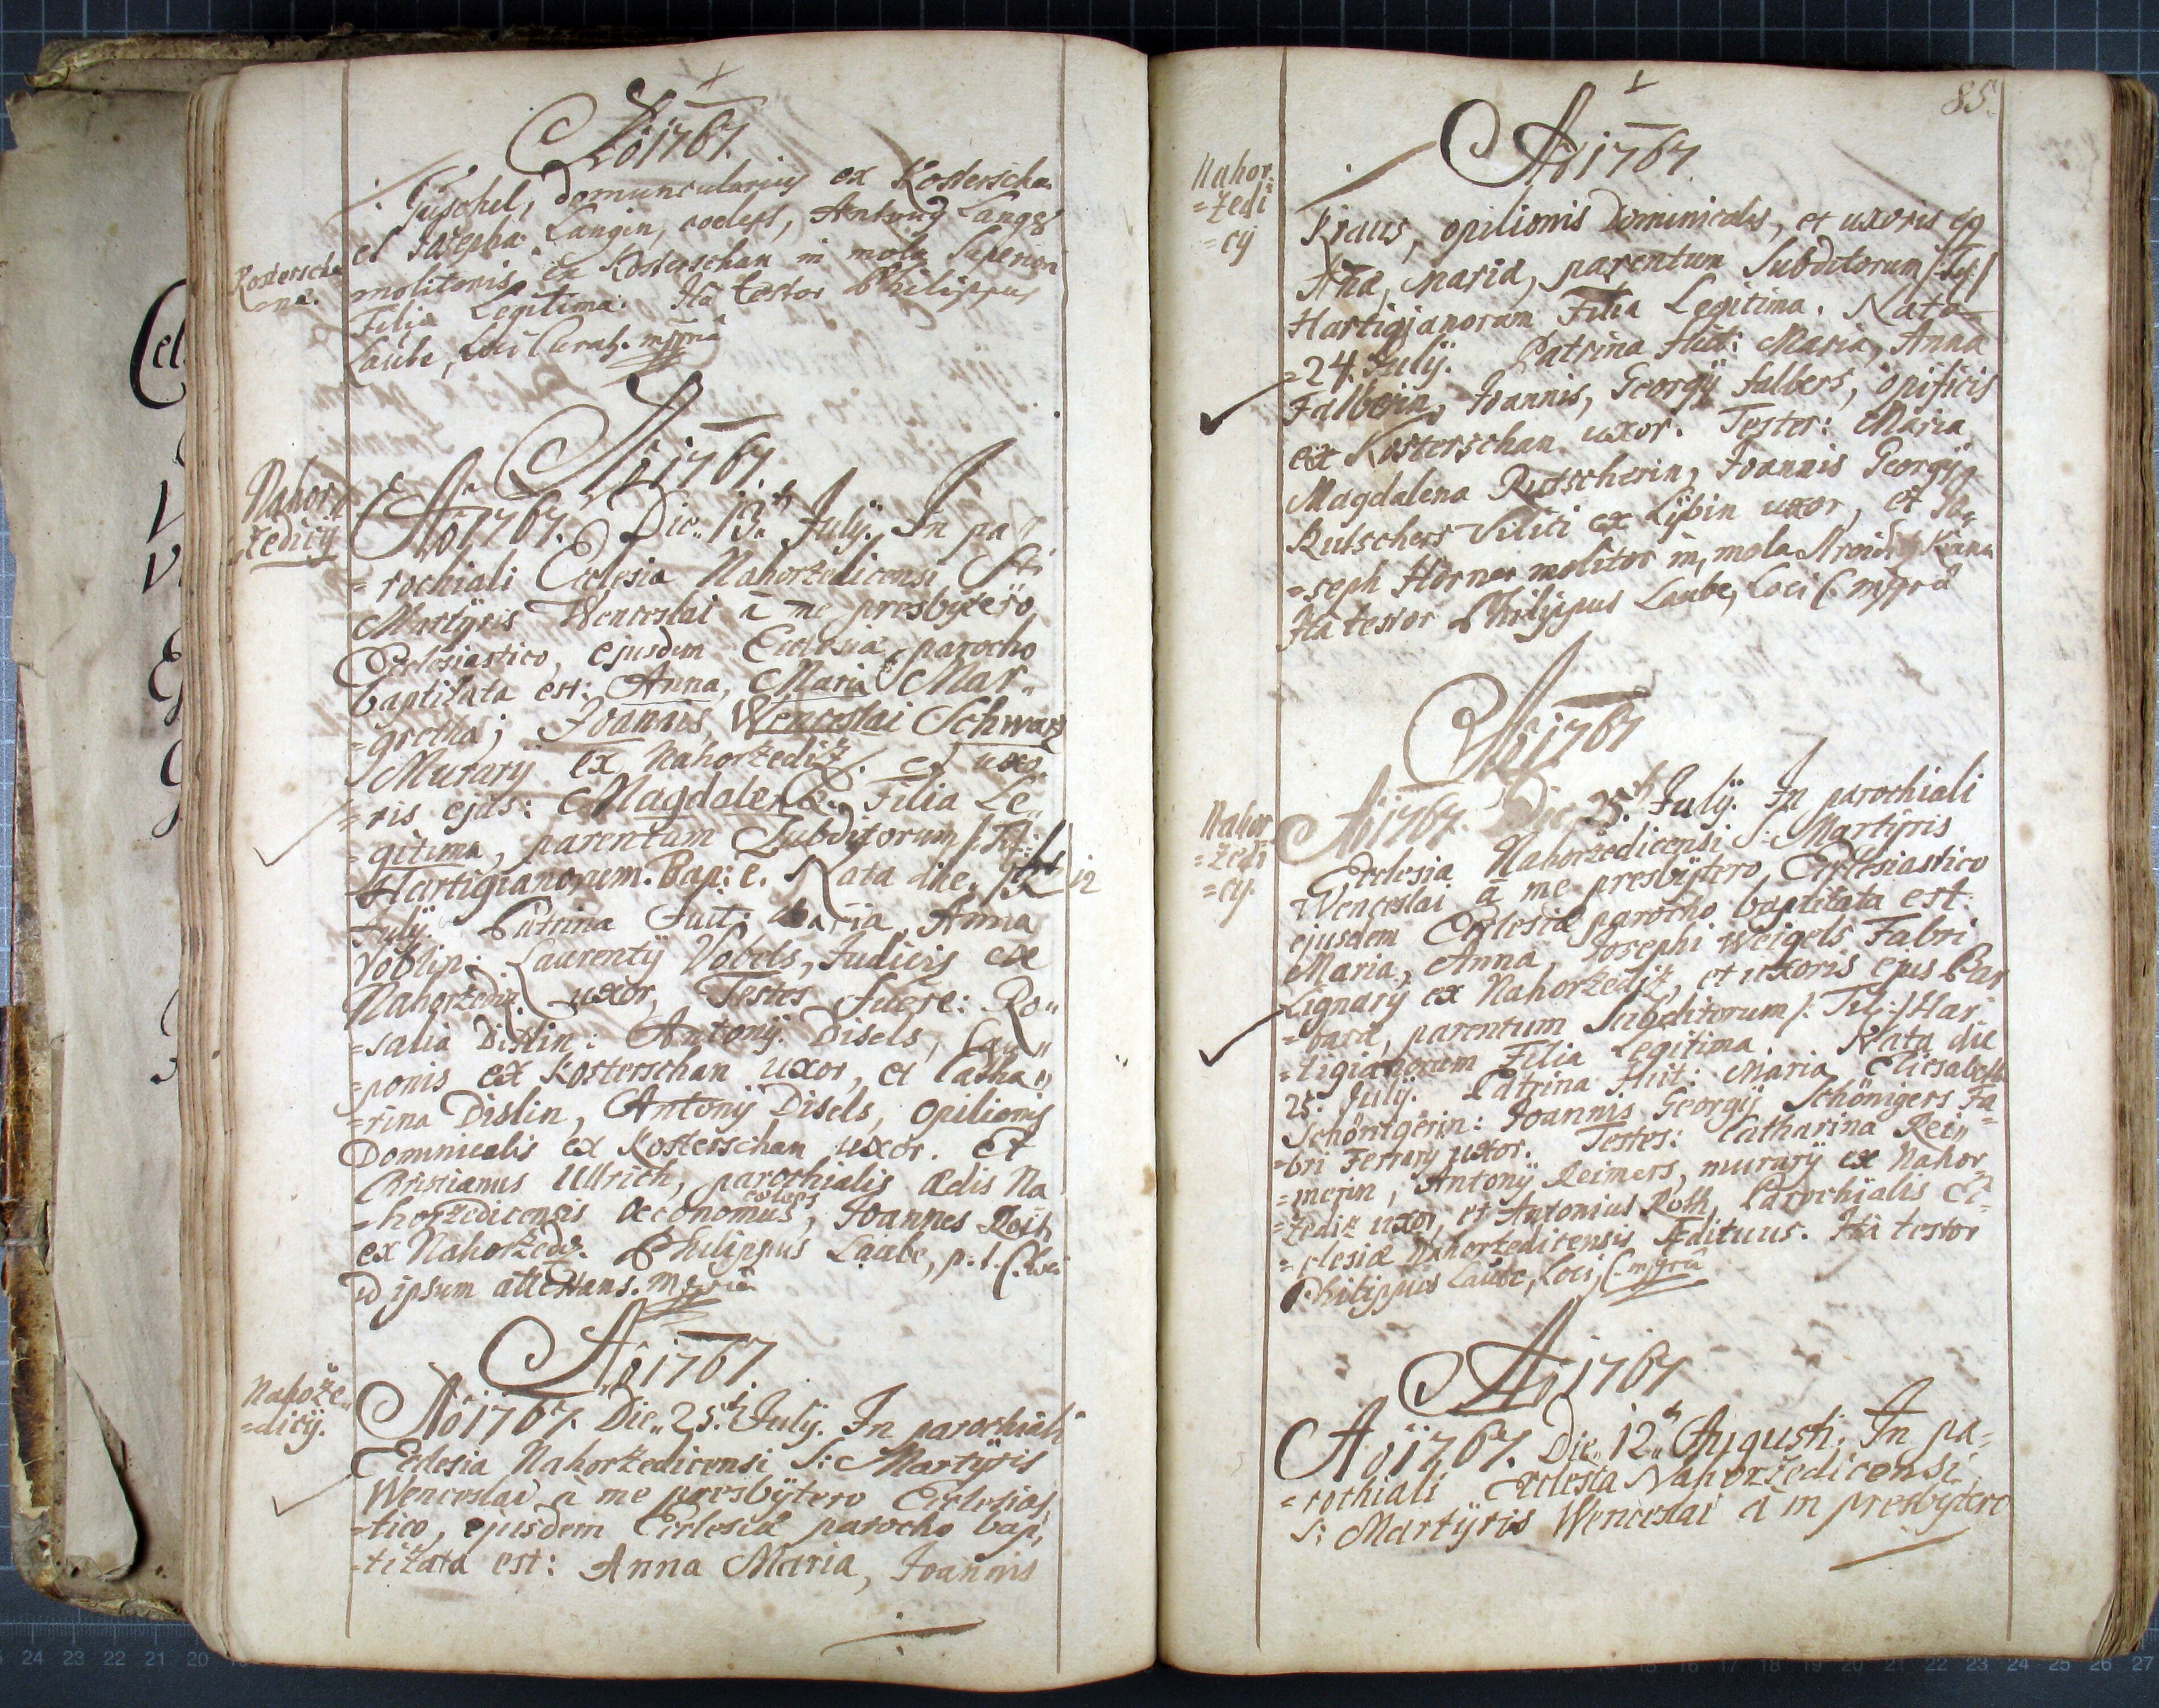 Aõ 1767.
Juschel, domuncularius ex Kosterschan
et Josepha Langin, coelebs, Antonij Langs
Kosterscha
=nae.
molitoris ex Kosterschan in mola Superiori
Filia Legitima. Ita testor Philippus
Laube, Loci Curat. mppria
Aõ 1767.
Nahor=
=zedicij
Aõ 1767. Die 13a July. In pa=
=rochiali Ecclesia Nahorzedicensi Sti
Martyris Wenceslai à me presbytero
Ecclesiastico, ejusdem Ecclesiae parocho
baptizata est: Anna, Maria Mar=
=gretha; Joannis, Wenceslai Schwarz
Murarij ex Nahorzediz et uxo=
=ris ejus: Magdalena Filia Le=
=gitima, parentum Subditorum /:Tit:/
Hartigianorum. Bap: e. Nata die 12
July. Patrina Fuit: Maria, Anna
Voblin: Laurentij Vobels, Judicis ex
Nahorzediz uxor, Testes fuere: Ro=
=salia Dislin: Antonij Disels, Cau=
=ponis ex Kosterschan uxor, et Catha=
=rina Dislin, Antonij Disels, opilionis
Dominicalis ex Kosterschan uxor. Et
Christianus Ullrich, parochialis aedis Na
=horzedicensis oeconomus coelebs, Joannes
ex Nahorzediz. Philippus Laube, p. t. C. loci
id ipsum attestans. mppria
Aõ 1767.
Nahoze=
=dicij.
Aõ 1767. Die 25a July. In parochiali
Ecclesia Nahorzedicensi S: Martyris
Wenceslai à me presbytero Ecclesias
=tico, ejusdem Ecclesiae parocho bap=
=tizata est: Anna Maria, Joannis
85.
Aõ 1767.
Nahor
=zedi
=cij
Kraus, opilionis Dominicalis, et uxoris ejg
Aña, Maria, parentum Subditorum /:Tit:/
Hartigianorum Filia Legitima. Nata
=24. July. Patrina fuit: Maria, Anna
Falberin, Joannis, Georgij Falbers, opificis
ex Kosterschan uxor. Testes: Maria
Magdalena Rutscherin, Joannis Georgij
Rutschers Vilici ex Lybin uxor, et Jo=
=seph Hörner molitor in mola
Ita testor Philippus Laube, Loci C. mppria
Aõ 1767
Nahor
=zedi
=cij.
Aõ 1767. Die 25.a July. In parochiali
Ecclesia Nahorzedicensi S: Martyris
Wenceslai à me presbytero, Ecclesiastico
ejusdem Ecclesiae parocho baptizata est
Maria, Anna, Josephi Weigels Fabri
Lignarij ex Nahorzediz, et uxoris ejus Bar
=bara, parentum Subditorum /:Tit:/ Har=
=tigianorum Filia Legitima. Nata die
25. July. Patrina fuit: Maria Elisabeth
Schönigerin: Joannis Georgij Schönigers Fa=
=bri Ferrarij uxor. Testes: Catharina Rei=
=merin, Antonij Reimers, murarij ex Nahor
=zediz uxor, et Antonius Roth, Parochialis Ec=
=clesiae Nahorzedicensis AEdituus. Ita testor
Philippus Laube, Loci, C. mppria
Aõ 1767
Aõ 1767. Die 12a Augusti. In pa=
=rochiali Ecclesia Nahorzedicensi
S: Martyris Wenceslai à m presbytero